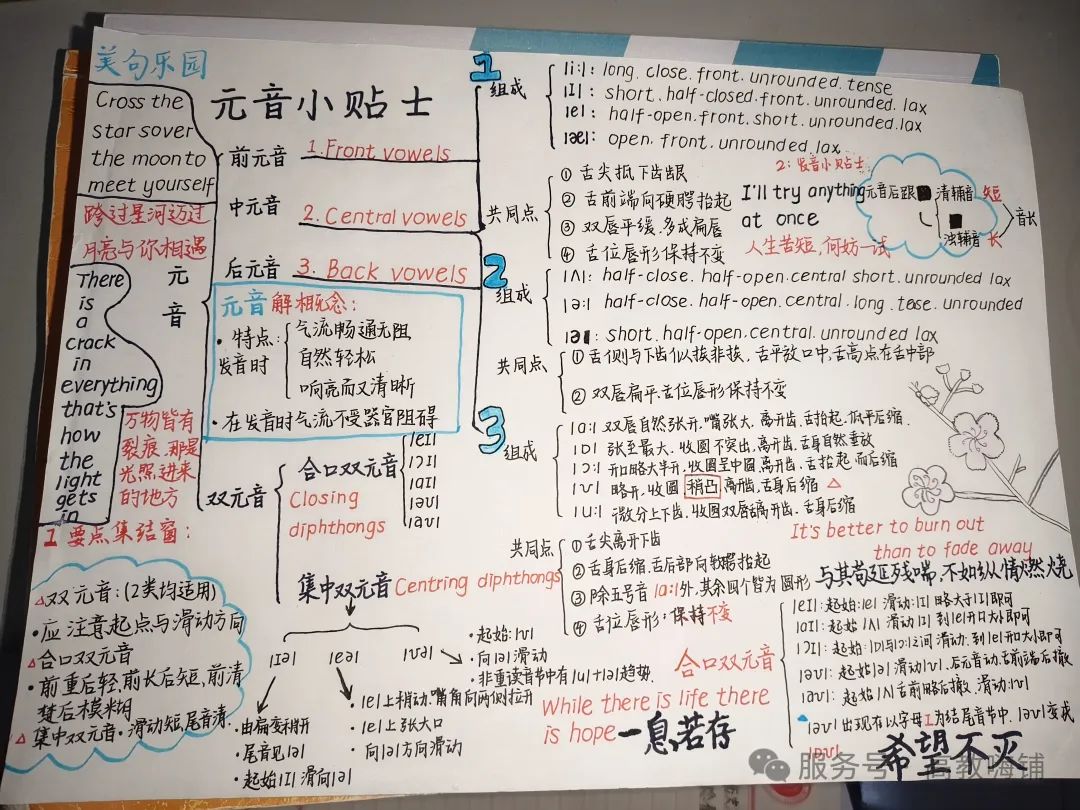 美句乐园
Cross the
star sover
the moon to
meet yourself
跨过星河迈过
月亮与你相遇
There
is
a
crack
in
everything
that's
how
the
light
gets
in
万物皆有
裂痕,那是
光照进来
的地方
元音小贴士
元
音
前元音 1.Front vowels
中元音 2.Central vowels
后元音 3. Back vowels
元音解相概念:
·特点:
发音时
气流畅通无阻
自然轻松
响亮而又清晰
·在发音时气流不受器官阻碍
双元音
合口双元音
Closing
diphthongs
|eI|
|ɔI|
|aI|
|əʊ|
|aʊ|
集中双元音 Centring diphthongs
|ɪə| |eə| |ʊə|
·尾音见|ə|
·起始|I|滑向|ə|
·|e|上稍动.嘴角向两侧拉开
·|e|上张大口
·向|ə|方向滑动
·起始:|ʊ|
·向|ə|滑动
·非重读音节中有|u|+|ə|趋势.
1
组成
|i:|: long. close. front. unrounded. tense
|I|: short. half-closed. front. unrounded. lax
|e|: half-open. front. short. unrounded. lax
|æ|: open. front. unrounded. lax
共同点
① 舌尖抵下齿龈
② 舌前端向硬腭抬起
③ 双唇平缓.多成扁唇
④ 舌位唇形保持不变
2:发音小贴士
I'll try anything
at once
人生苦短,何妨一试
元音后跟
清辅音 短
浊辅音 长
音长
2
组成
|ʌ|: half-close. half-open. central short. unrounded lax
|ə:| half-close. half-open. central. long. tease. unrounded
|ə|: short. half-open. central. unrounded lax
共同点
① 舌侧与下齿似挨非挨,舌平放口中,舌高点在舌中部
② 双唇扁平.舌位唇形保持不变
3
组成
|ɑ:| 双唇自然张开.嘴张大.离开齿、舌抬起.低平后缩.
|ɒ| 张至最大.收圆不突出,离开齿、舌身自然垂放
|ɔ:| 开口略大半开.收圆呈中圆,离开齿、舌抬起而后缩
|ʊ| 略开.收圆 稍凸 离开齿、舌身后缩 △
|u:| 微分上下齿.收圆双唇离开齿、舌身后缩
共同点
① 舌尖离开下齿
② 舌身后缩.舌后部向软腭抬起
③ 除五号音|ɑ:|外,其余四个皆为圆形
④ 舌位唇形:保持不变
It's better to burn out
than to fade away
与其苟延残喘,不如纵情燃烧
1要点集结窗:
△双元音:(2类均适用)
·应注意起点与滑动方向
△合口双元音
·前重后轻,前长后短,前清
楚后模糊
△集中双元音·滑动短,尾音清.
合口双元音
|eI|:起始:|e| 滑动:|I| 略大于|I|即可
|aI|:起始|ʌ| 滑动|I| 到|e|开口大小即可
|ɔI|:起始:|ɒ|与|ɔ:|之间滑动.到|e|开口大小即可
|əʊ|:起始|ə| 滑动|ʊ|.后元音动.舌前端后撤
|aʊ|:起始|ʌ|舌前略后撤.滑动:|ʊ|
While there is life there
is hope
一息若存
希望不灭
服务号
高教嗨铺